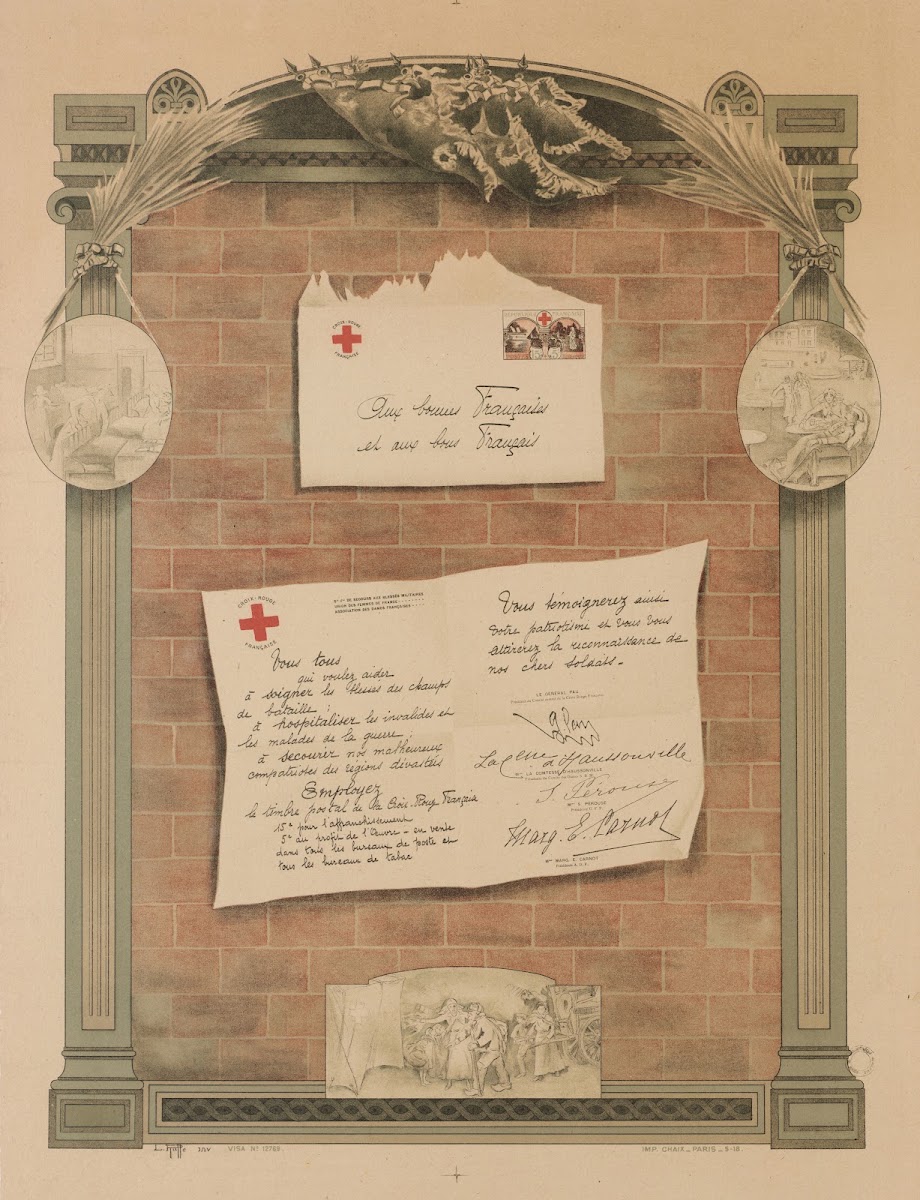 CROIX-ROUGE
FRANÇAISE
Aux bonnes Françaises
et aux bons Français
CROIX-ROUGE
FRANÇAISE
Sté Fse DE SECOURS AUX BLESSÉS MILITAIRES
UNION DES FEMMES DE FRANCE
ASSOCIATION DES DAMES FRANÇAISES
Vous tous
qui voulez aider
à soigner les blessés des champs
de bataille ;
à hospitaliser les invalides et
les malades de la guerre ;
à secourir nos malheureux
compatriotes des régions dévastées
Employez
le timbre postal de la Croix-Rouge Française
15c pour l'affranchissement
5c au profit de l'Œuvre - en vente
dans tous les bureaux de poste et
tous les bureaux de tabac
Vous témoignerez ainsi
votre patriotisme et vous vous
attirerez la reconnaissance de
nos chers soldats -
LE GÉNÉRAL PAU
Pau
La Ctesse d'Haussonville
Mme LA COMTESSE D'HAUSSONVILLE
S. Pérouse
Mme S. PÉROUSE
Marg. E. Carnot
Mme MARG. E. CARNOT
inv VISA No 12788
IMP. CHAIX_PARIS_5-18